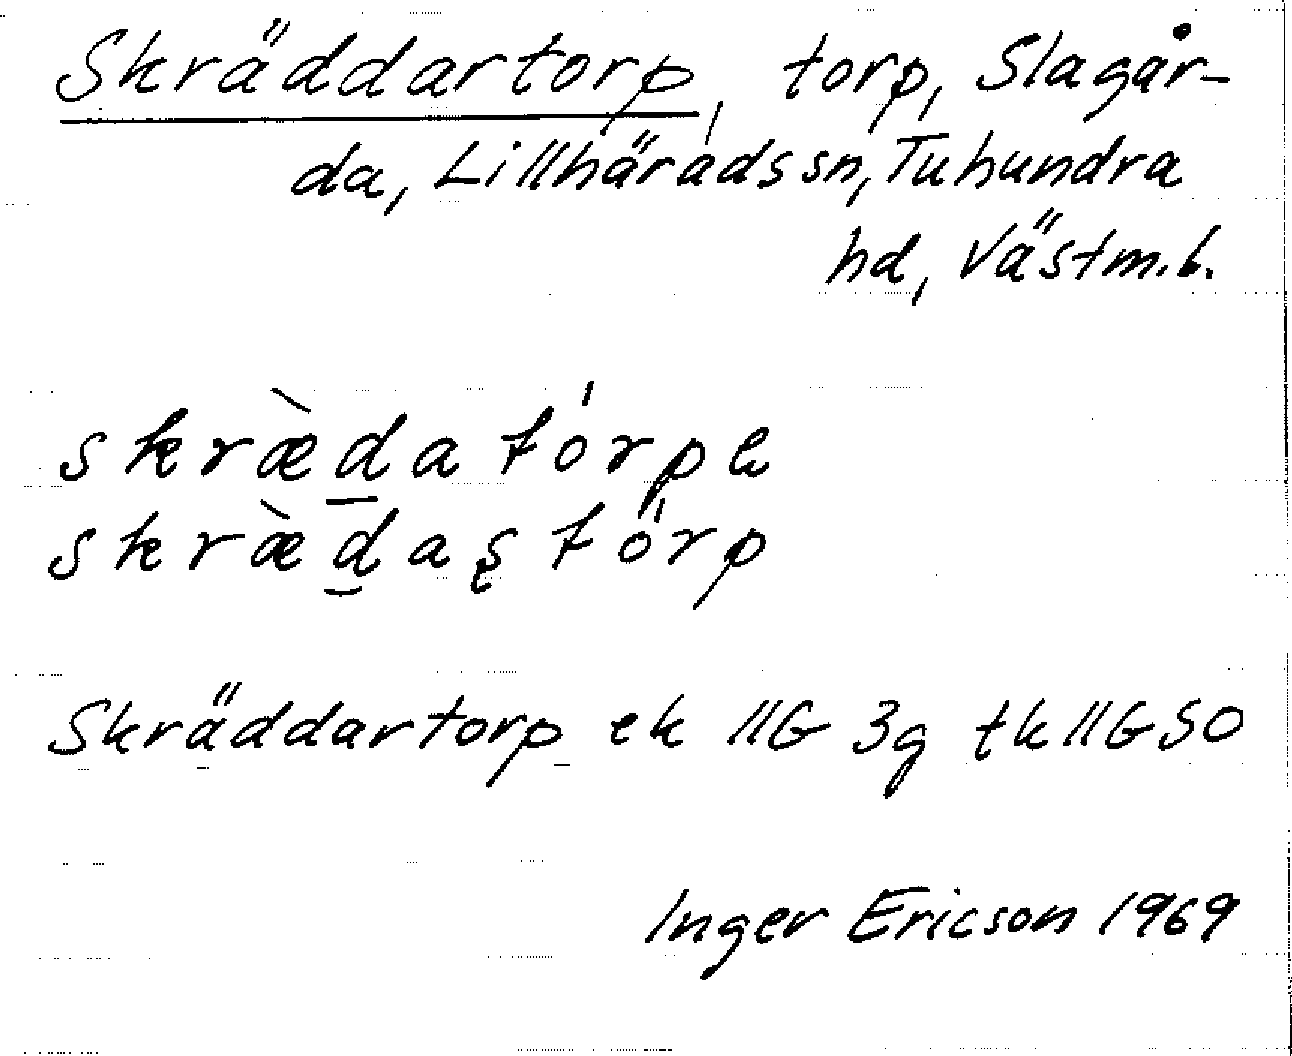 Skräddartorp, torp, Slagår-
da, Lillhärads sn, Tuhundra
hd, Västm.l.
skræ̀da tórpe
skræ̀daș tórp
Skräddartorp ek 11G 3g tk 11G SO
Inger Ericson 1969